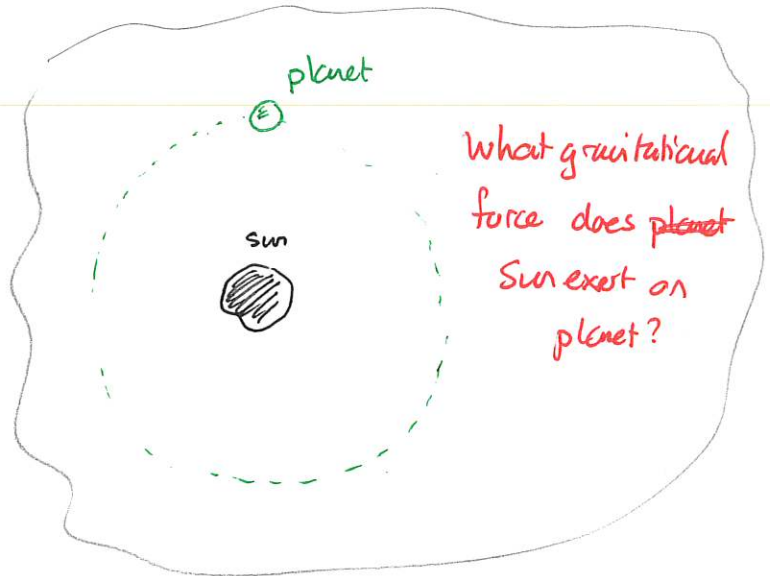 planet
E
sun
What gravitational
force does planet
Sun exert on
planet?